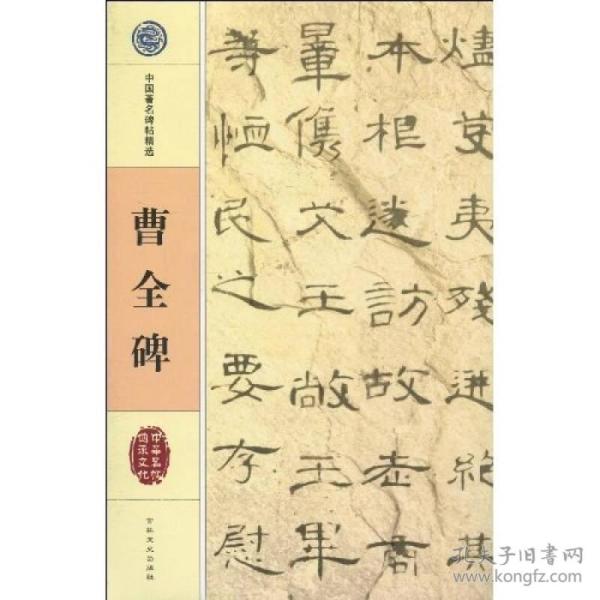 燼芟夷殘迸絶其
本根遂訪故老商
量儁艾王敞王畢
等恤民之要存慰
中国著名碑帖精选
曹全碑
中華名帖
傳承文化
吉林文史出版社
孔夫子旧书网
www.kongfz.com